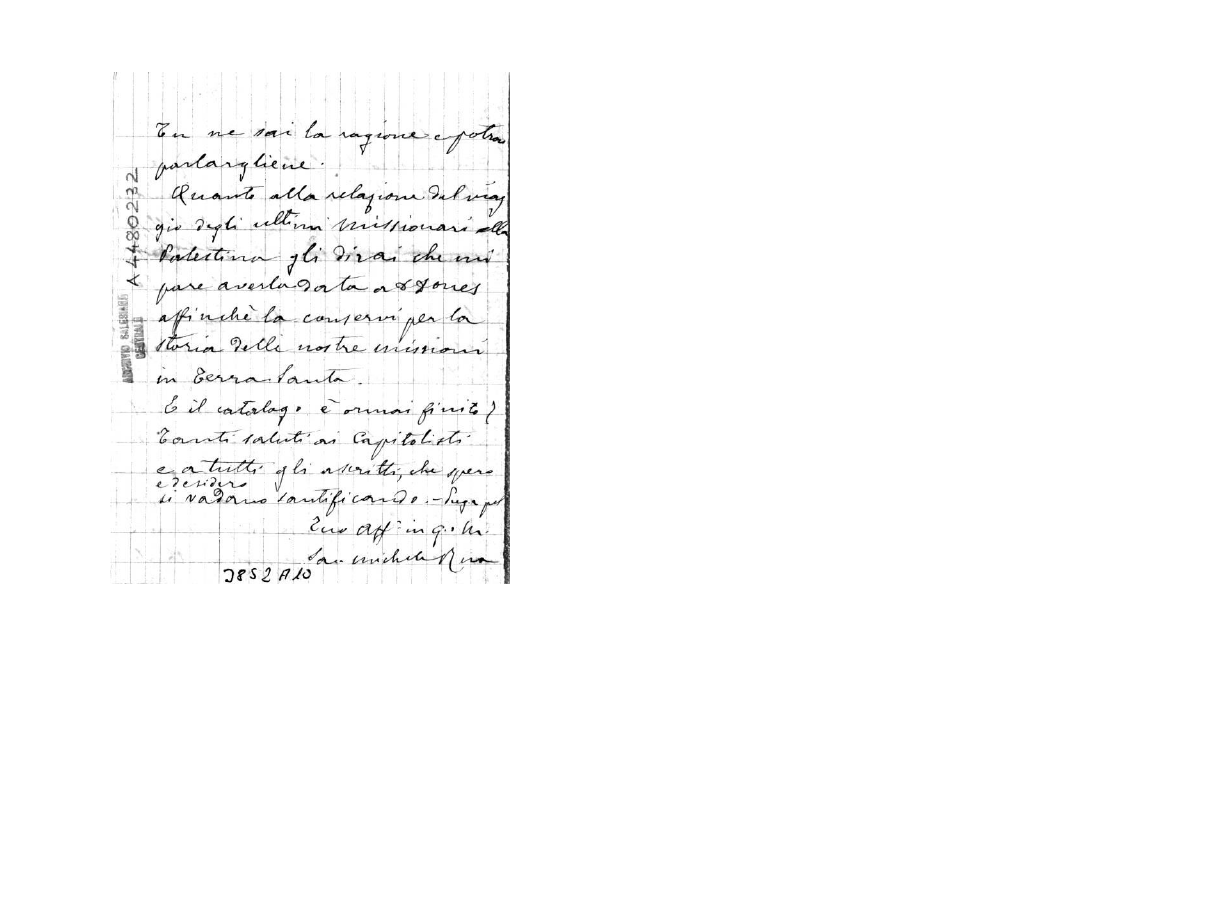 Tu ne sai la ragione e potrai
parlargliene.
Quanto alla relazione del viag
gio degli ultimi missionari alla
Palestina gli dirai che mi
pare averla data a D
affinchè la conservi per la
storia delle nostre missioni
in Terra Santa.
E il catalogo è ormai finito?
Tanti saluti ai Capitolisti
e a tutti gli ascritti, che spero
e desidero
si vadano santificando. - Prega pel
Tuo Aff. in G. e M.
Sac. Michele Rua
A4480232
ARCHIVIO SALESIANO
CENTRALE